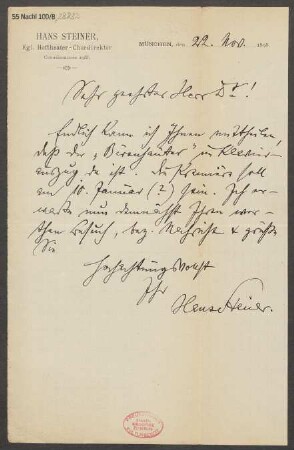 55 Nachl 100/B
HANS STEINER,
Kgl. Hoftheater-Chordirektor
MÜNCHEN, den 22. Nov. 18
Sehr geehrter Herr Dr!
Endlich kann ich Ihnen mittheilen,
daß der „Bärenhäuter“ im Klavier-
auszug da ist. Die Premiere soll
am 10. Januar (?) sein. Ich er-
warte nun demnächst Ihren wer-
then Besuch, bez. Nachricht & grüße
Sie
Hochachtungsvollst
Ihr
Hans Steiner.